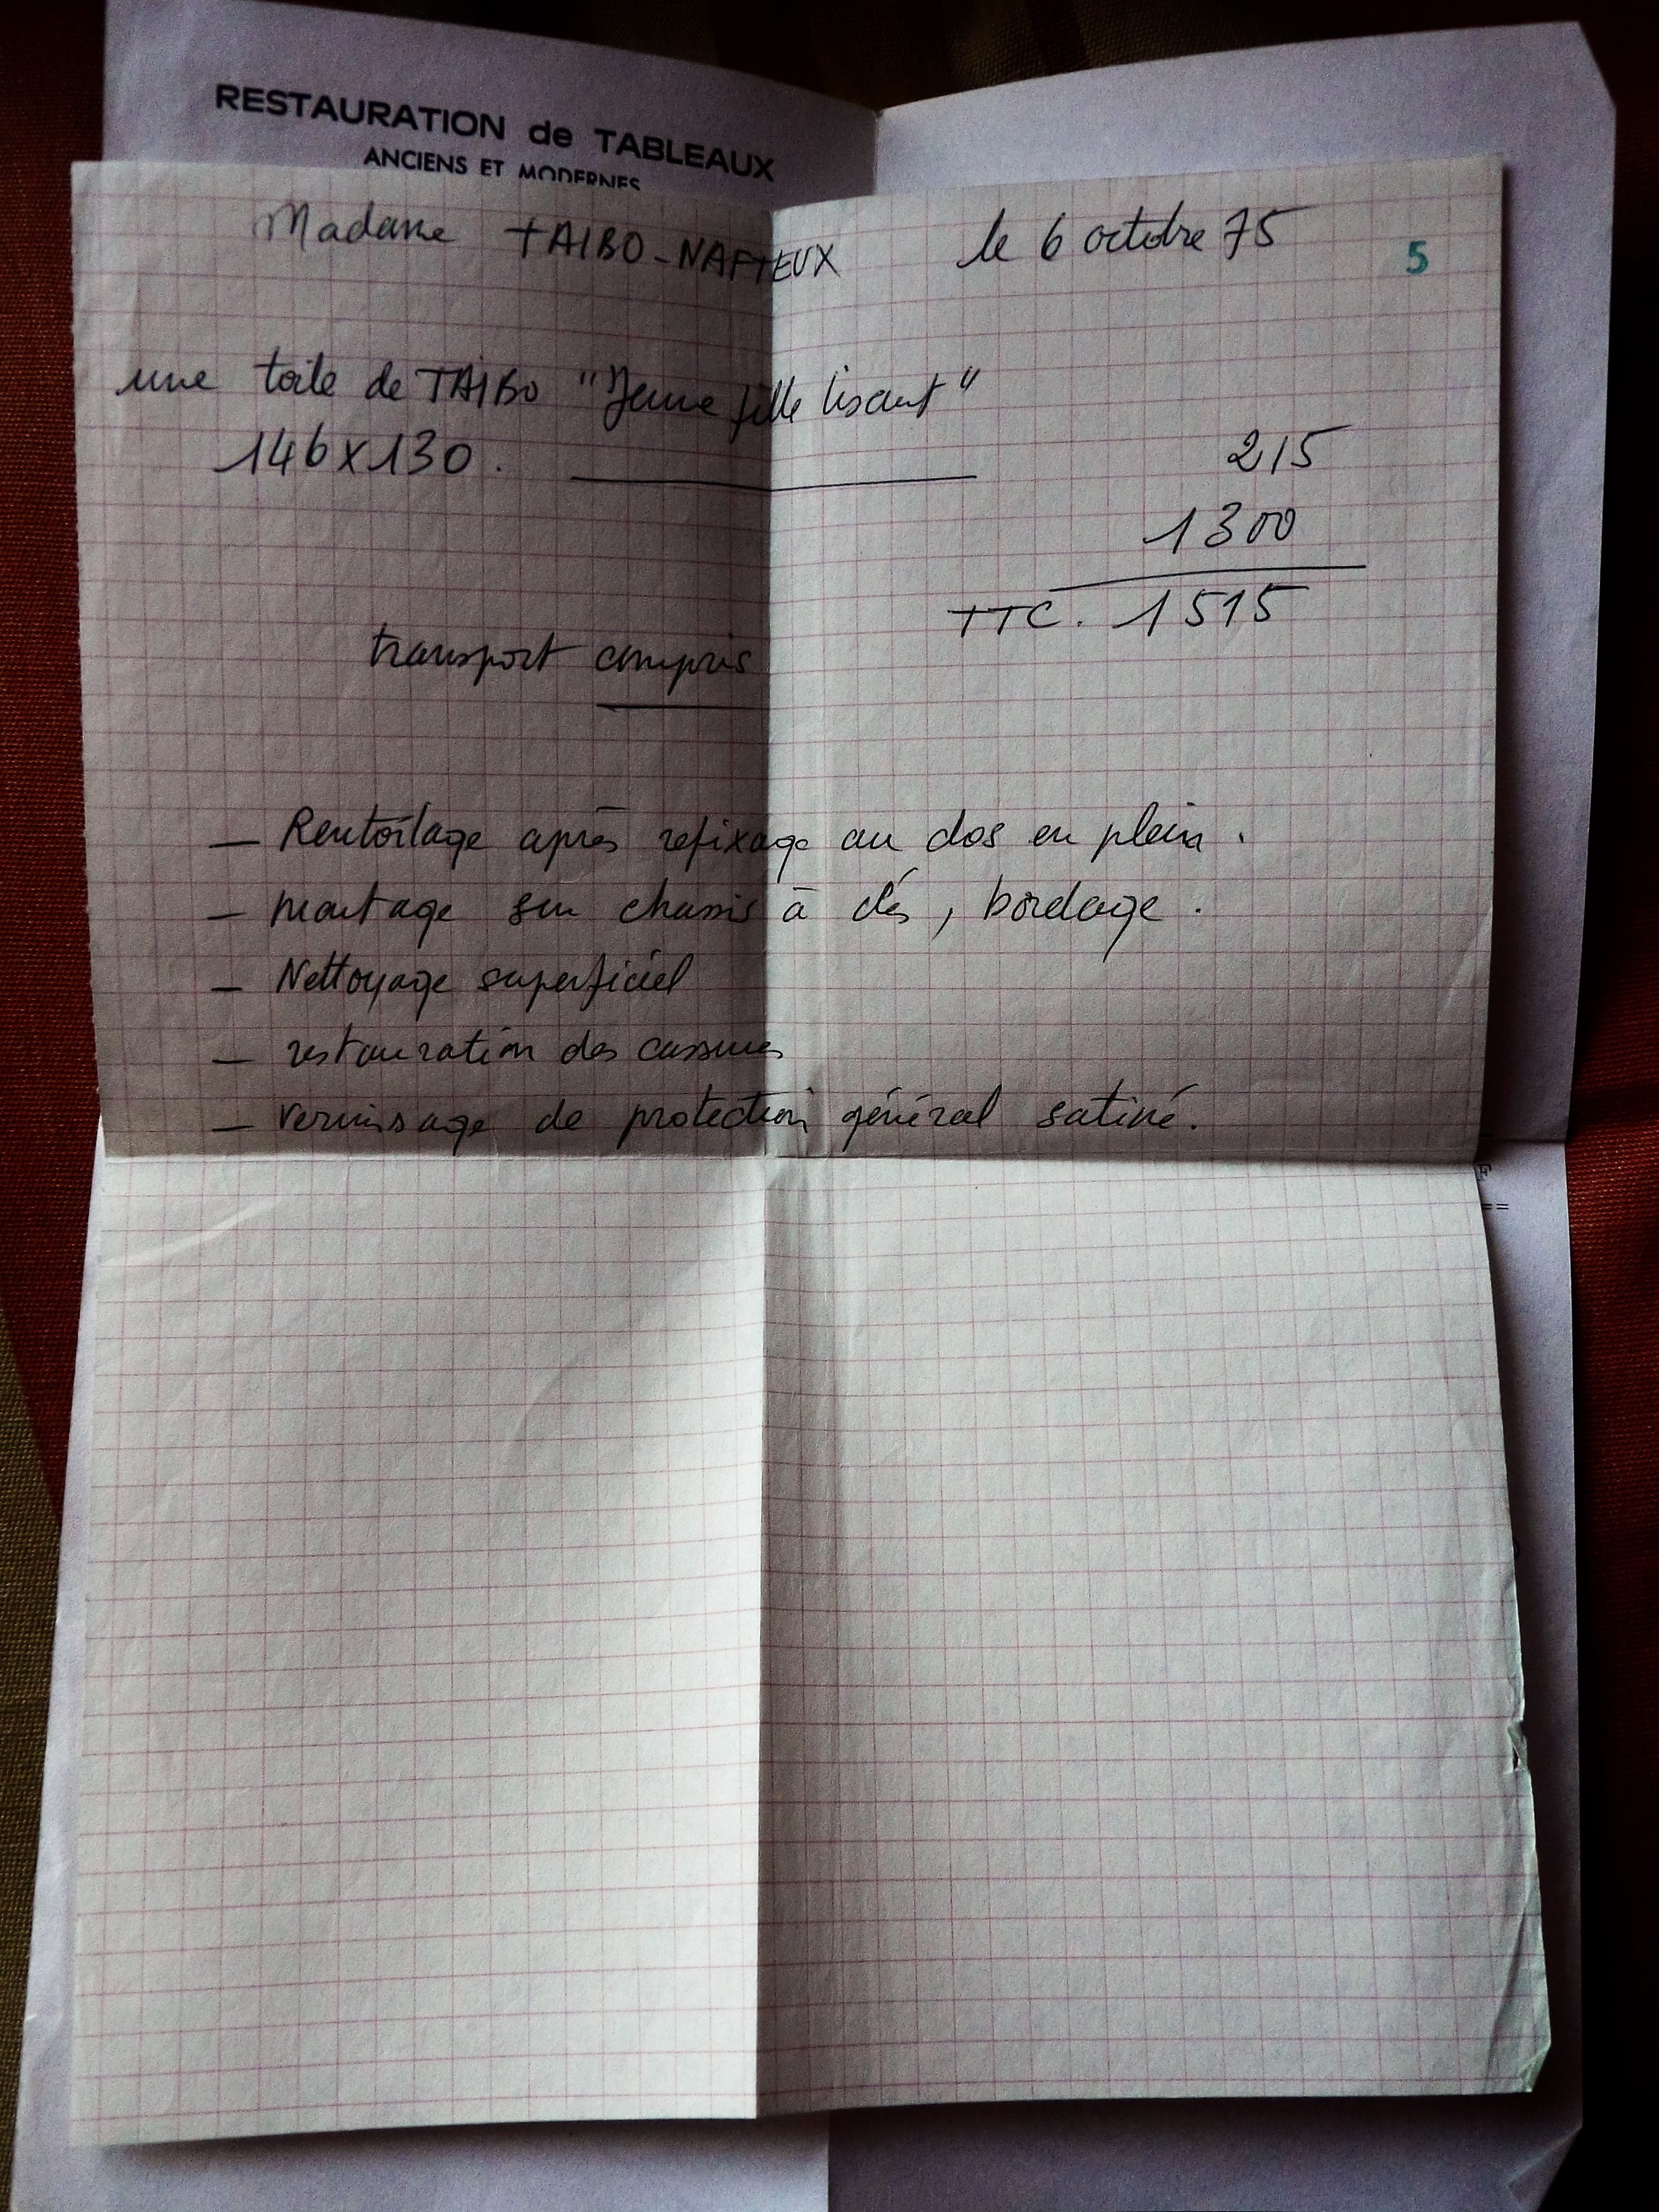 RESTAURATION de TABLEAUX
ANCIENS ET MODERNES
Madame TAIBO-NAFTEUX le 6 octobre 75 5
une toile de TAIBO "Jeune fille lisant"
146x130. 215
1300
TTC. 1515
transport compris
— Rentoilage après refixage au dos en plein.
— montage sur chassis à clés, bordage.
— Nettoyage superficiel
— restauration des cassures
— vernissage de protection général satiné.
F
==